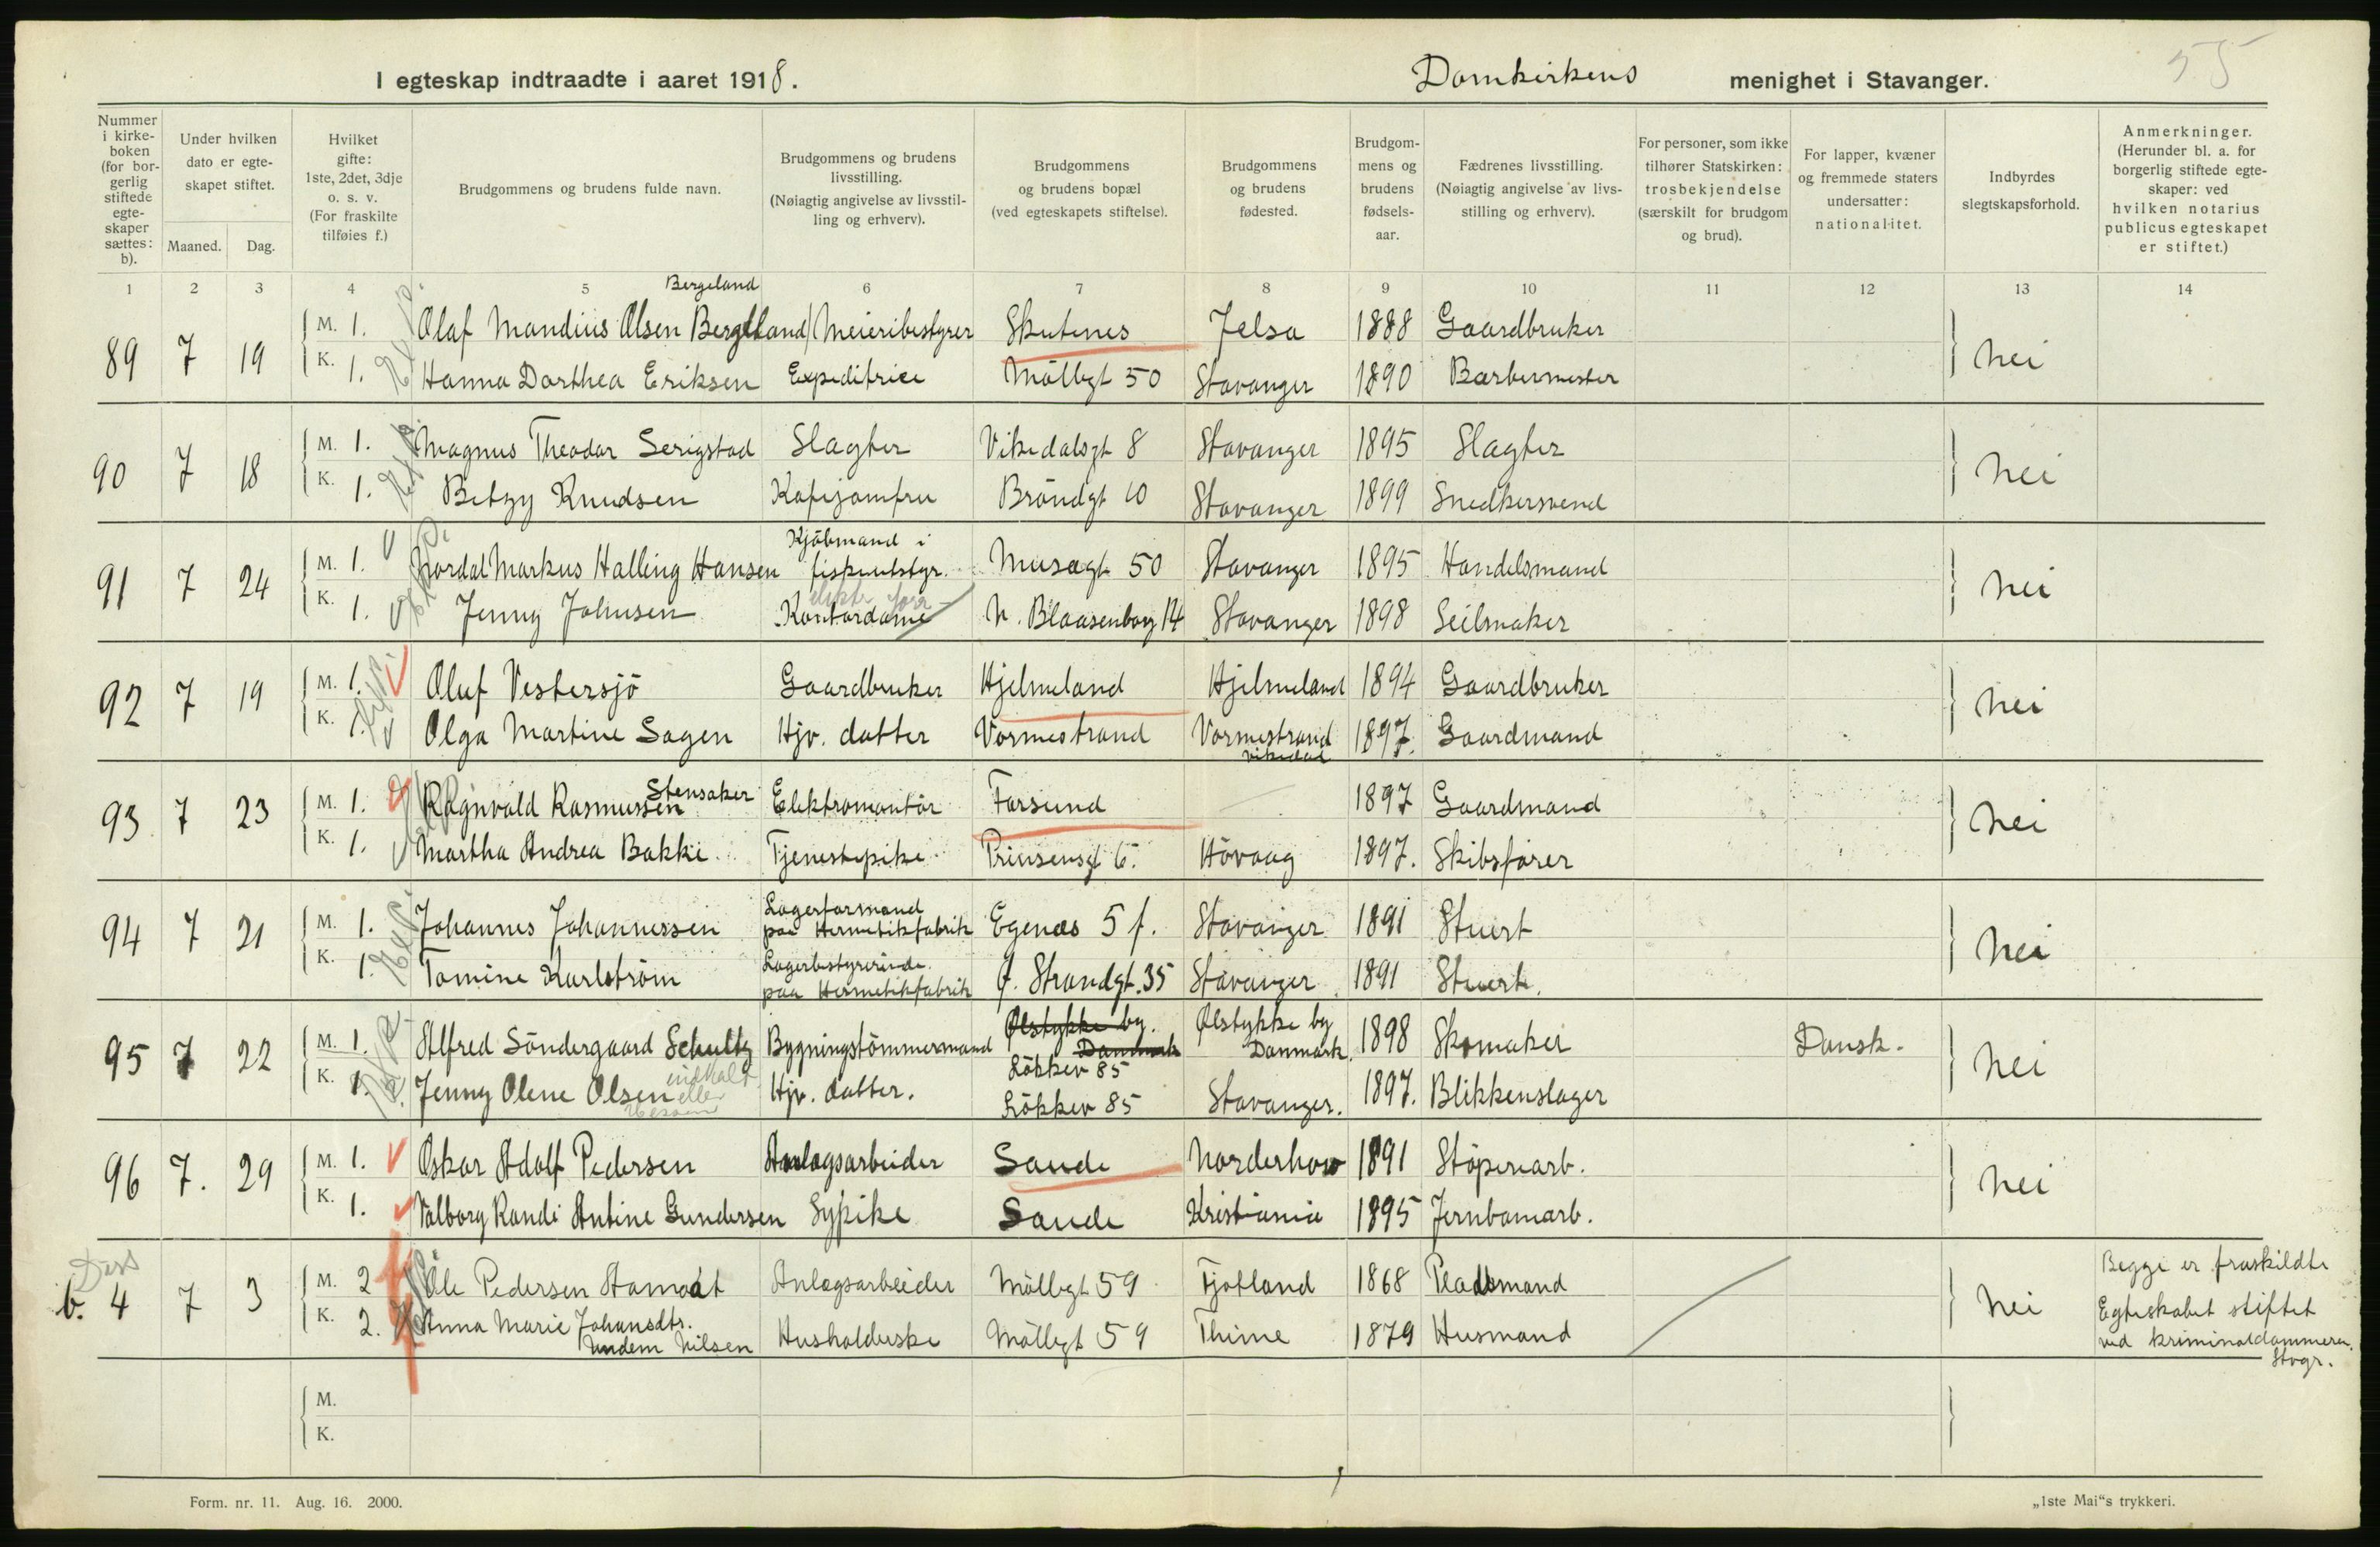 55
I egteskap indtraadte i aaret 1918. Domkirkens menighet i Stavanger.
Nummer i kirkeboken (for borgerlig stiftede egteskaper sættes: b).
Under hvilken dato er egteskapet stiftet.
Maaned. Dag.
Hvilket gifte: 1ste, 2det, 3dje o. s. v. (For fraskilte tilføies f.)
Brudgommens og brudens fulde navn.
Brudgommens og brudens livsstilling. (Nøiagtig angivelse av livsstilling og erhverv).
Brudgommens og brudens bopæl (ved egteskapets stiftelse).
Brudgommens og brudens fødested.
Brudgommens og brudens fødselsaar.
Fædrenes livsstilling. (Nøiagtig angivelse av livsstilling og erhverv).
For personer, som ikke tilhører Statskirken: trosbekjendelse (særskilt for brudgom og brud).
For lapper, kvæner og fremmede staters undersatter: nationalitet.
Indbyrdes slegtskapsforhold.
Anmerkninger. (Herunder bl. a. for borgerlig stiftede egteskaper: ved hvilken notarius publicus egteskapet er stiftet.)
1 2 3 4 5 6 7 8 9 10 11 12 13 14
Bergeland
89 7 19 M. 1. Olaf Mandius Olsen Bergeland Meieribestyrer Skutenes Jelsa 1888 Gaardbruker nei
K. 1. Hanna Dorthea Eriksen Expeditrice Möllegt 50 Stavanger 1890 Barbermester
90 7 18 M. 1. Magnus Theodor Serigstad Slagter Vikedalsgt 8 Stavanger 1895 Slagter nei
K. 1. Betzy Knudsen Kafejomfru Bröndgt 10 Stavanger 1899 Snedkersvend
91 7 24 M. 1. Nordal Markus Halling Hansen Kjöbmand i fiskeutstyr. Musegt 50 Stavanger 1895 Handelsmand nei
K. 1. Jenny Johnsen Kontordame N. Blaasenborg 14 Stavanger 1898 Seilmaker
92 7 19 M. 1. Oluf Vestersjö Gaardbruker Hjelmeland Hjelmeland 1894 Gaardbruker nei
K. 1. Olga Martine Sagen Hjv. datter Vormestrand Vormestrand Vikedal 1897. Gaardmand
93 7 23 M. 1. Ragnvald Rasmussen Stensaker Elektromontör Farsund 1897 Gaardmand nei
K. 1. Martha Andrea Bakke. Tjenestepike. Prinsensgt 6. Hövaag 1897. Skibsförer
94 7 21 M. 1. Johannes Johannessen Lagerformand paa Hermetikfabrik Egenæs 5 f. Stavanger 1891 Stuert nei
K. 1. Tomine Karlström Lagerbestyrerinde paa Hermetikfabrik Ø. Strandgt. 35 Stavanger 1891 Stuert.
95 7 22 M. 1. Alfred Söndergaard Schultz Bygningstömmermand Ølstykke by. Danmark Lökkev 85 Ølstykke by Danmark. 1898 Skomaker Dansk. nei
K. 1. Jenny Olene Olsen Hjv. datter. Lökkev 85 Stavanger. 1897. Blikkenslager
96 7. 29 M. 1. Oskar Adolf Pedersen Anlagsarbeider Sande Norderhov 1891 Stöperiarb. nei
K. 1. Valborg Randi Antine Gundersen Sypike Sande Kristiania 1895 Jernbanearb.
b. 4 7 3 M. 2 Ole Pedersen Hamodt Anlagsarbeider Möllegt 59 Fjotland 1868 Pladsmand nei
K. 2. Anna Marie Johansdtr. Undem Nilsen Husholderske Möllegt 59 Thime 1879 Husmand
Begge er fraskildte
Egteskabet stiftet
ved kriminaldommeren.
Stvgr.
M.
K.
Form. nr. 11. Aug. 16. 2000.
„1ste Mai“s trykkeri.